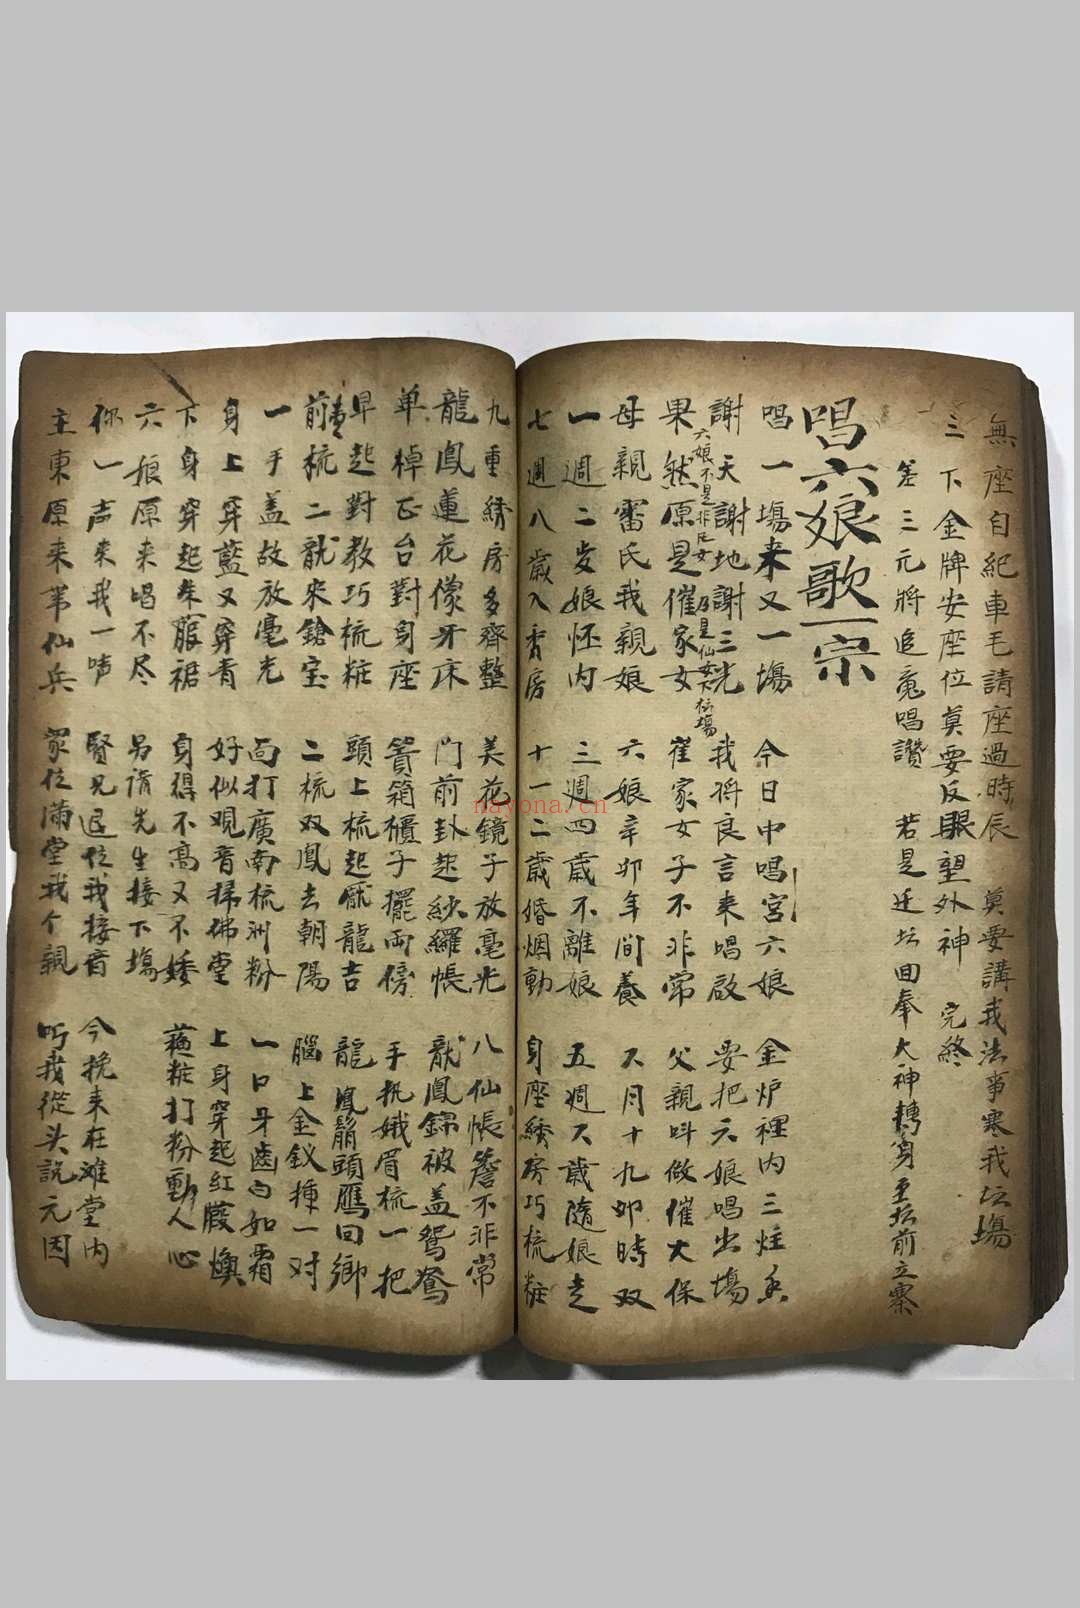 無座自紀車毛請座過時辰 莫要講我法事寒我坛塲
三下金牌安座位莫要反眼望外神 完終
差三元將追竟唱讚 若是迁坛回奉大神轉身至坛前立寨
唱六娘歌一宗
唱一塲来又一塲 今日中唱宮六娘 金炉裡内三炷香
謝天謝地謝三光 我将良言来唱啟 要把六娘唱出塲
六娘不是非凡女 乃是仙女下坛塲
果然原是催家女 崔家女子不非常 父親叫做催大保
母親雷氏我親娘 六娘辛卯年間養 六月十九卯時双
一週二岁娘怀内 三週四歳不離娘 五週六歳隨娘走
七週八歳入香房 十一二歳婚烟動 身座綉房巧梳粧
九重綉房多齊整 美花鏡子放毫光 八仙帳簷不非常
龍鳳蓮花像牙床 門前卦起紗羅帳 龍鳳錦被盖鴛鴦
单棹正台對身座 箦箱櫃子擺両傍 手执娥眉梳一把
早起對教巧梳粧 頭上梳起猒龍吉 龍鳳鬅頭鴈回鄉
前梳二龍來鎗宝 二梳双鳳去朝陽 腦上金釵揷一对
一手盖故放毫光 面打廣南梳洲粉 一口牙齒白如霜
身上穿藍又穿青 好似观音掃佛堂 上身穿起红𦝫煥
下身穿起朱服裙 身得不高又不矮 蕋粧打粉動人心
六娘原来唱不尽 另請先生接下塲
你一声来我一声 賢兄退位我接音 今挽来在滩堂内
主東原来第仙兵 眾位满堂我个親 听我從头説元因
nayona.cn